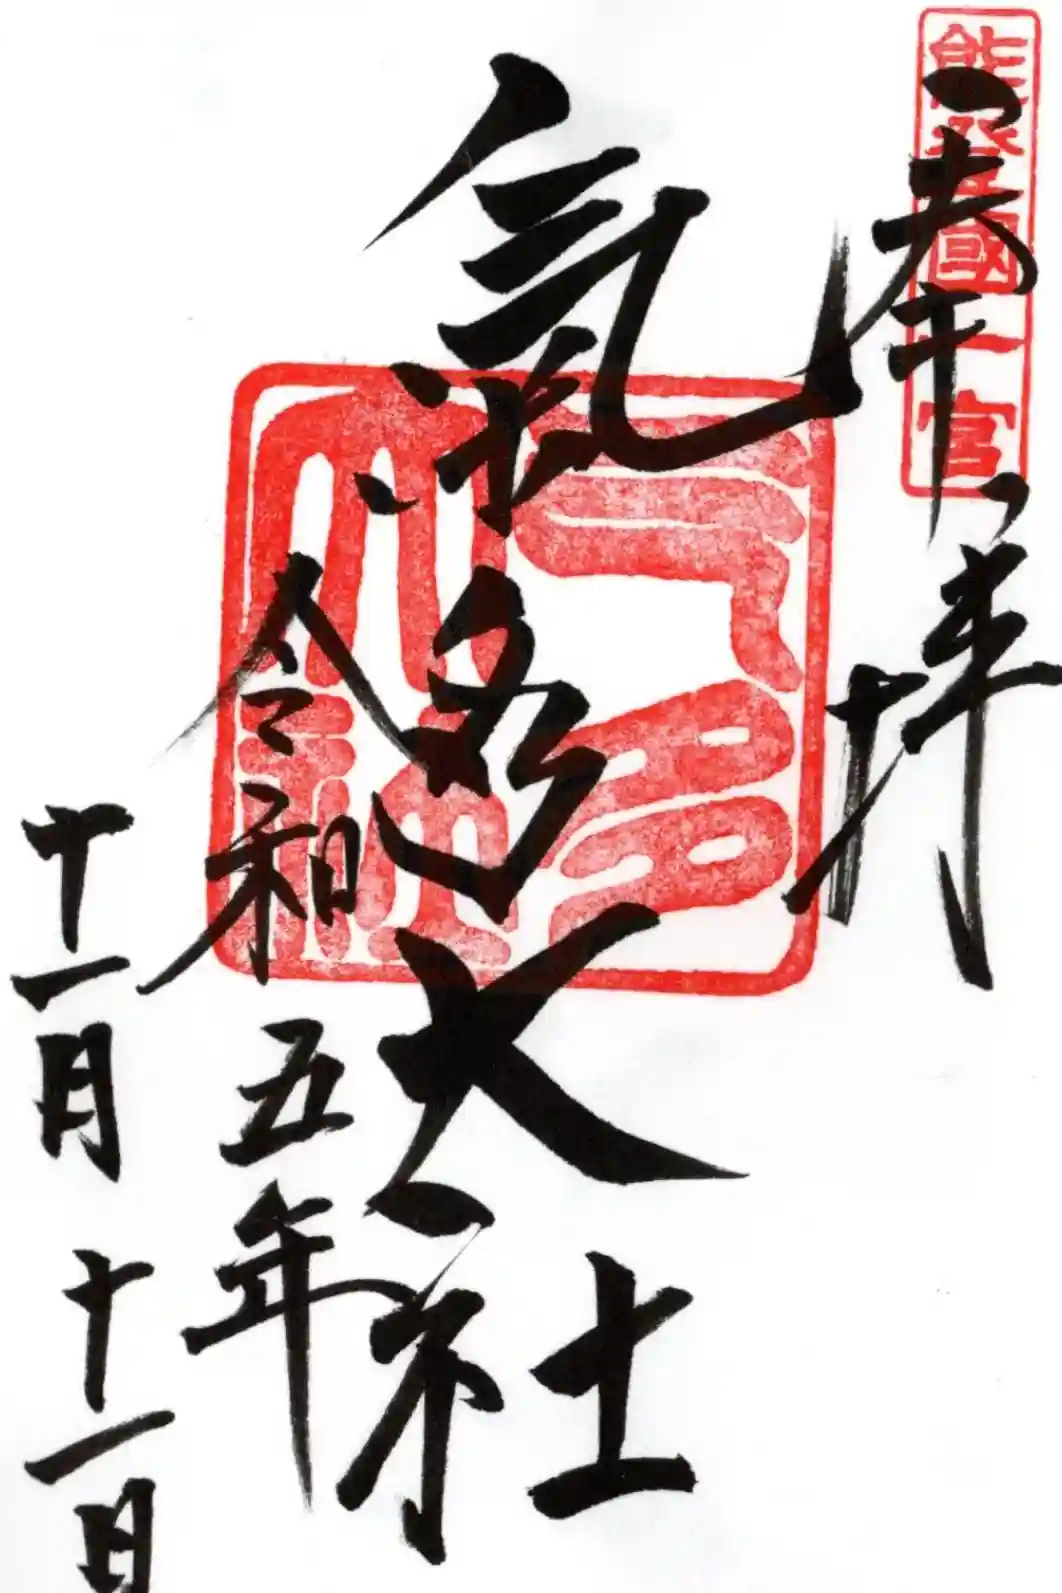 能登國一宮
奉拝
氣多大社
気多大社
令和五年
十一月十一日